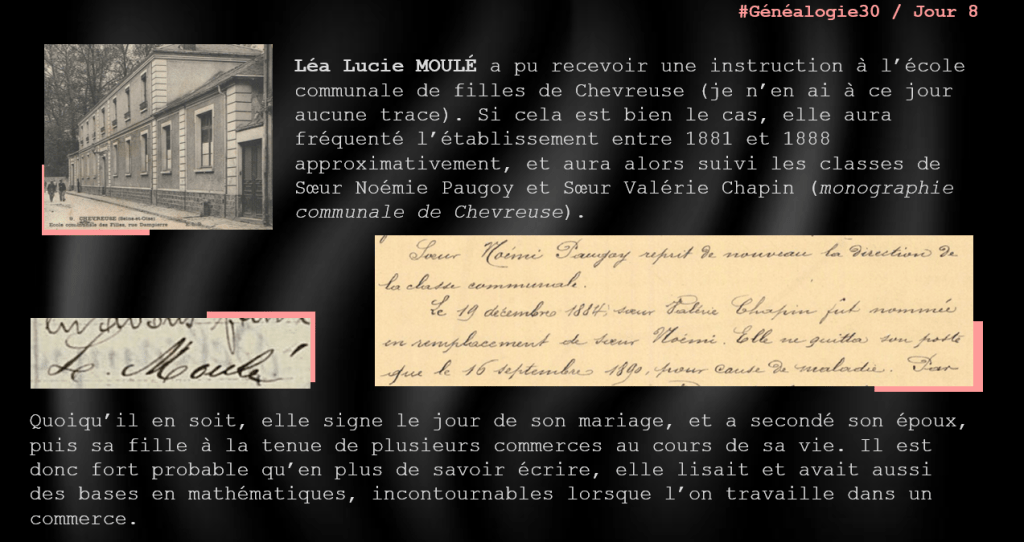 #Généalogie30 / Jour 8
Léa Lucie MOULÉ a pu recevoir une instruction à l’école
communale de filles de Chevreuse (je n’en ai à ce jour
aucune trace). Si cela est bien le cas, elle aura
fréquenté l’établissement entre 1881 et 1888
approximativement, et aura alors suivi les classes de
Sœur Noémie Paugoy et Sœur Valérie Chapin (monographie
communale de Chevreuse).
9. CHEVREUSE (Seine-et-Oise)
Ecole communale des Filles, rue Dampierre
Sœur Noémi Paugoy reprit de nouveau la direction de
la classe communale.
Le 19 décembre 1884, sœur Valérie Chapin fut nommée
en remplacement de sœur Noémi. Elle ne quitta son poste
que le 16 septembre 1890, pour cause de maladie. Par
L. Moulé
Quoiqu’il en soit, elle signe le jour de son mariage, et a secondé son époux,
puis sa fille à la tenue de plusieurs commerces au cours de sa vie. Il est
donc fort probable qu’en plus de savoir écrire, elle lisait et avait aussi
des bases en mathématiques, incontournables lorsque l’on travaille dans un
commerce.